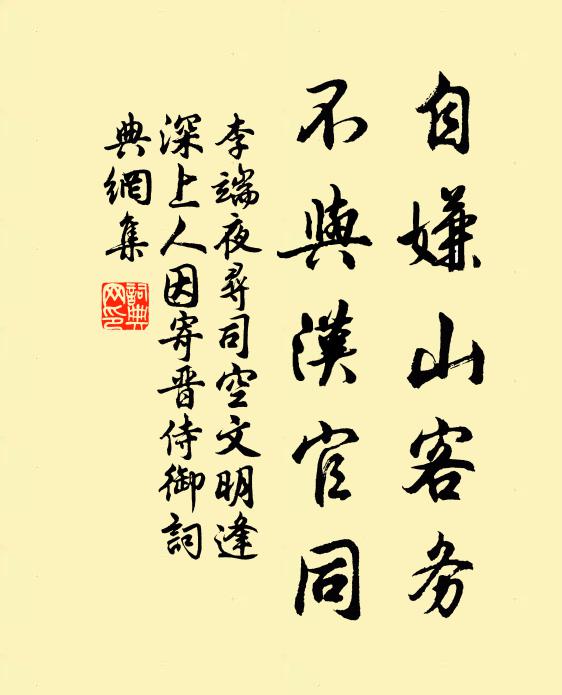 自嫌山客务
不與漢官同
李端夜尋司空文明逢
深上人因寄晋侍御詞
典網集
詞典
网印